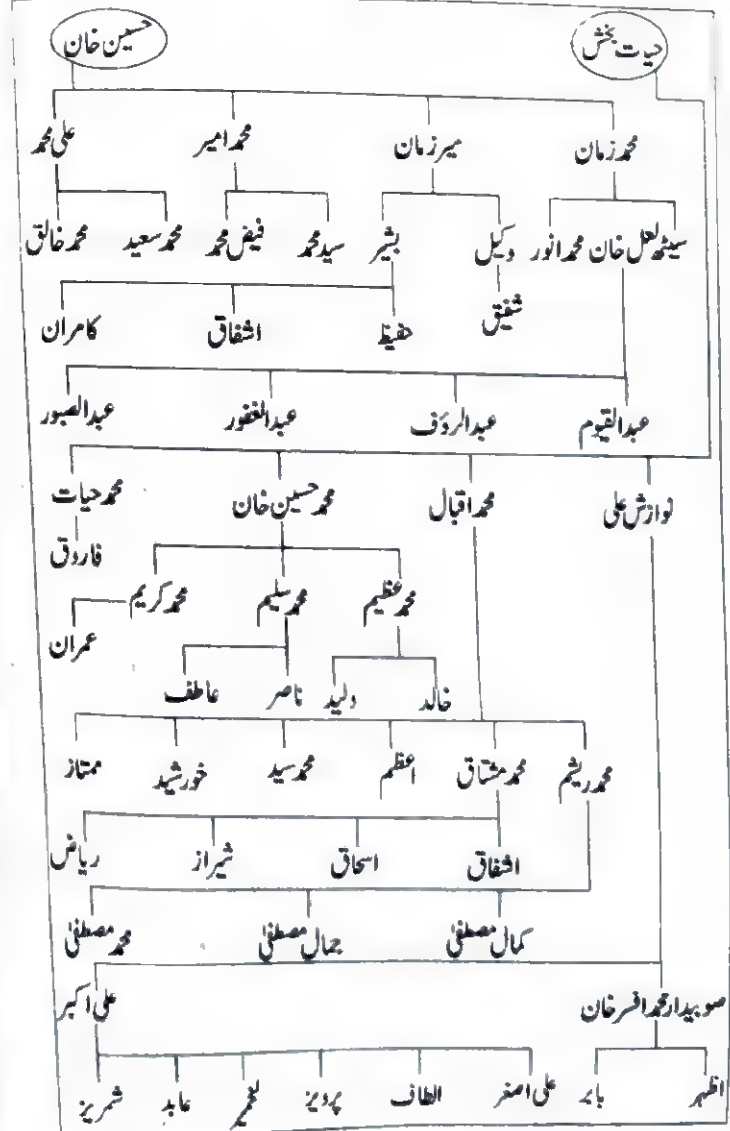 حیات بخش حسین خان
محمد زمان میر زمان محمد امیر علی محمد
سیٹھ لعل خان محمد انور وکیل بشیر سید محمد فیض محمد محمد سعید محمد خالق
شفیق حفیظ اشفاق کامران
عبدالقیوم عبدالرؤف عبدالغفور عبدالصبور
نوازش علی محمد اقبال محمد حسین خان محمد حیات
فاروق
محمد عظیم محمد سلیم محمد کریم
عمران
خالد ولید ناصر عاطف
محمد ریشم محمد مشتاق اعظم محمد سید خورشید ممتاز
اشفاق اسحاق شیراز ریاض
کمال مصطفیٰ جمال مصطفیٰ محمد مصطفیٰ
صوبیدار محمد افسر خان علی اکبر
اظہر بابر علی اصغر الطاف پرویز عابد شمریز